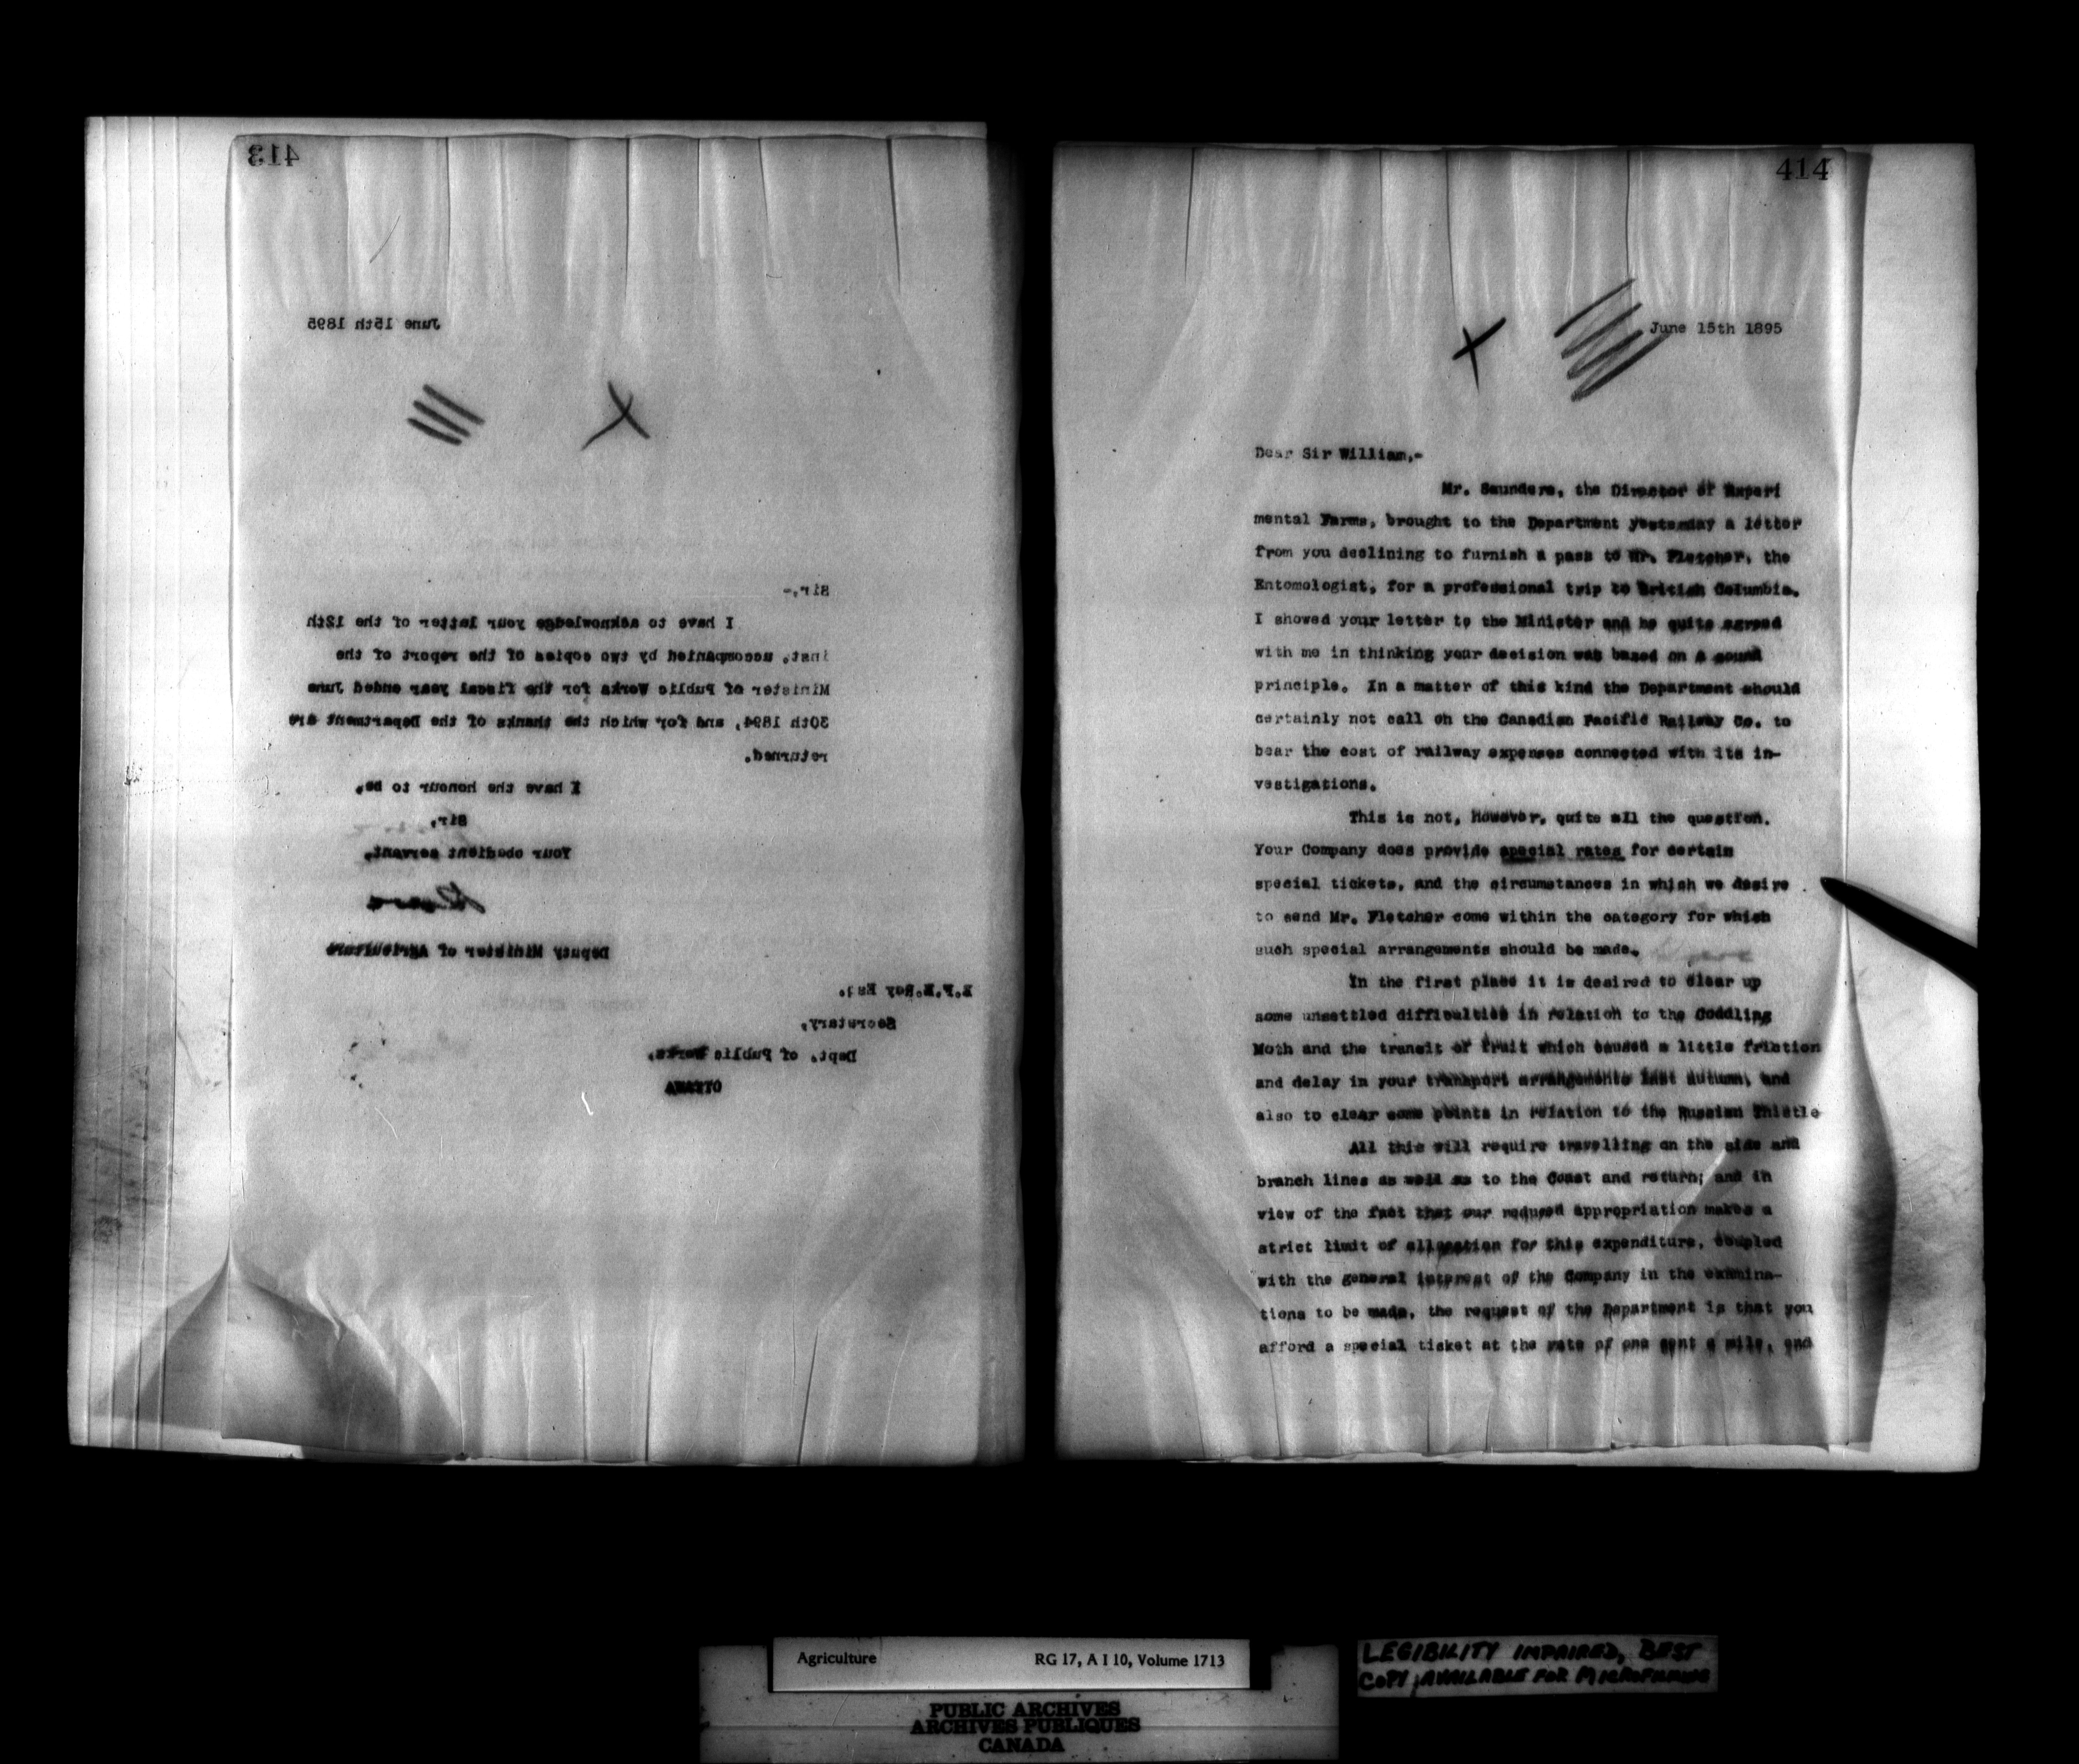 413
June 15th 1895
Sir,-
I have to acknowledge your letter of the 12th
inst. accompanied by two copies of the report of the
Minister of Public Works for the fiscal year ended June
30th 1894, and for which the thanks of the Department are
returned.
I have the honour to be,
Sir,
Your obedient servant,
Deputy Minister of Agriculture
E.F.E.Roy Esq.
Secretary,
Dept. of Public Works,
OTTAWA
414
June 15th 1895
Dear Sir William,-
Mr. Saunders, the Director of Experi
mental Farms, brought to the Department yesterday a letter
from you declining to furnish a pass to Mr. Fletcher, the
Entomologist, for a professional trip to British Columbia.
I showed your letter to the Minister and he quite agreed
with me in thinking your decision was based on a sound
principle. In a matter of this kind the Department should
certainly not call on the Canadian Pacific Railway Co. to
bear the cost of railway expenses connected with its in-
vestigations.
This is not, However, quite all the question.
Your Company does provide special rates for certain
special tickets, and the circumstances in which we desire
to send Mr. Fletcher come within the category for which
such special arrangements should be made.
In the first place it is desired to clear up
some unsettled difficulties in relation to the Coddling
Moth and the transit of fruit which caused a little friction
and delay in your transport arrangements last autumn, and
also to clear some points in relation to the Russian Thistle
All this will require travelling on the side and
branch lines as well as to the Coast and return; and in
view of the fact that our reduced appropriation makes a
strict limit of allocation for this expenditure, coupled
with the general interest of the Company in the examina-
tions to be made, the request of the Department is that you
afford a special ticket at the rate of one cent a mile, and
Agriculture RG 17, A I 10, Volume 1713
PUBLIC ARCHIVES
ARCHIVES PUBLIQUES
CANADA
LEGIBILITY IMPAIRED, BEST
COPY AVAILABLE FOR MICROFILMING